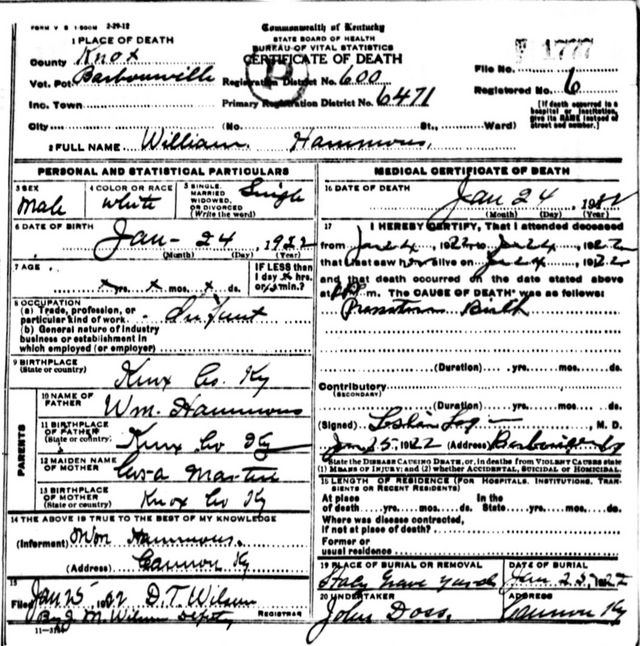 FORM V S 1-500M 2-29-12
Commonwealth of Kentucky
STATE BOARD OF HEALTH
BUREAU OF VITAL STATISTICS
CERTIFICATE OF DEATH
1 PLACE OF DEATH
County Knox
Vot. Pct Barbourville
Inc. Town
City (No. St., Ward)
Registration District No. 600
Primary Registration District No. 6471
File No. 1777
Registered No. 6
[If death occurred in a hospital or institution, give its NAME instead of street and number.]
2 FULL NAME William Hammons,
PERSONAL AND STATISTICAL PARTICULARS
3 SEX Male
4 COLOR OR RACE White
5 SINGLE, MARRIED WIDOWED, OR DIVORCED (Write the word) Single
6 DATE OF BIRTH Jan - 24, 1922
(Month) (Day) (Year)
7 AGE x yrs. x mos. x ds.
IF LESS than 1 day hrs. or min.?
8 OCCUPATION
(a) Trade, profession, or particular kind of work Infant
(b) General nature of industry business or establishment in which employed (or employer)
9 BIRTHPLACE (State or country) Knox Co. Ky
PARENTS
10 NAME OF FATHER Wm. Hammons
11 BIRTHPLACE OF FATHER (State or country) Knox Co Ky
12 MAIDEN NAME OF MOTHER
13 BIRTHPLACE OF MOTHER (State or country) Knox Co Ky
14 THE ABOVE IS TRUE TO THE BEST OF MY KNOWLEDGE
(Informant) Wm Hammons.
(Address) Cannon Ky
15
Filed Jan 25 D.T. Wilson
By J. M. Wilson Depoty REGISTRAR
11-3184
MEDICAL CERTIFICATE OF DEATH
16 DATE OF DEATH Jan 24, 192
(Month) (Day) (Year)
17 I HEREBY CERTIFY, That I attended deceased
from Jan 24, 1922 to Jan 24, 1922
that I last saw h alive on Jan 24, 1922
and that death occurred on the date stated above
at m. The CAUSE OF DEATH was as follows:
Premature Birth
(Duration) yrs. mos. ds.
Contributory
(SECONDARY)
(Duration) yrs. mos. ds.
(Signed) M. D.
Jan 25, 1922 (Address)
State the DISEASE CAUSING DEATH, or, in deaths from VIOLENT CAUSES state (1) MEANS OF INJURY; and (2) whether ACCIDENTAL, SUICIDAL or HOMICIDAL.
18 LENGTH OF RESIDENCE (FOR HOSPITALS, INSTITUTIONS, TRANSIENTS OR RECENT RESIDENTS)
At place of death yrs. mos. ds. In the State yrs. mos. ds.
Where was disease contracted, if not at place of death?
Former or usual residence
19 PLACE OF BURIAL OR REMOVAL Grave yard
DATE OF BURIAL Jan 25, 1922
20 UNDERTAKER John Doss,
ADDRESS Cannon Ky